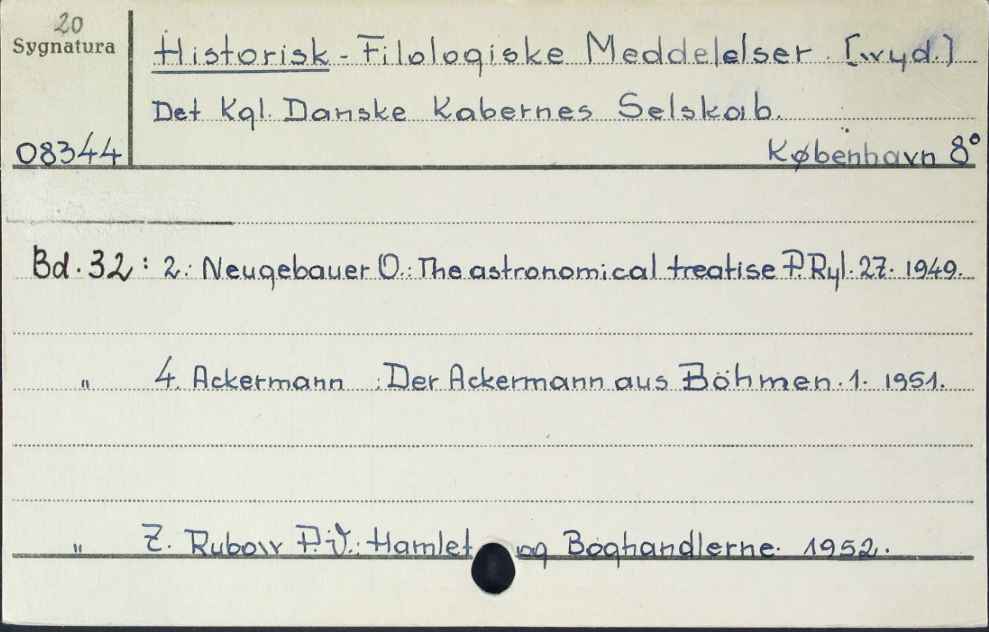 20
Sygnatura
Historisk - Filologiske Meddelelser. [wyd.]
Det Kgl. Danske Kabernes Selskab.
08344
København 8°
Bd. 32: 2.: Neugebauer O.: The astronomical treatise P. Ryl. 27. 1949.
" 4. Ackermann : Der Ackermann aus Böhmen. 1. 1951.
" 7. Rubow P.V.: Hamlet og Boghandlerne. 1952.